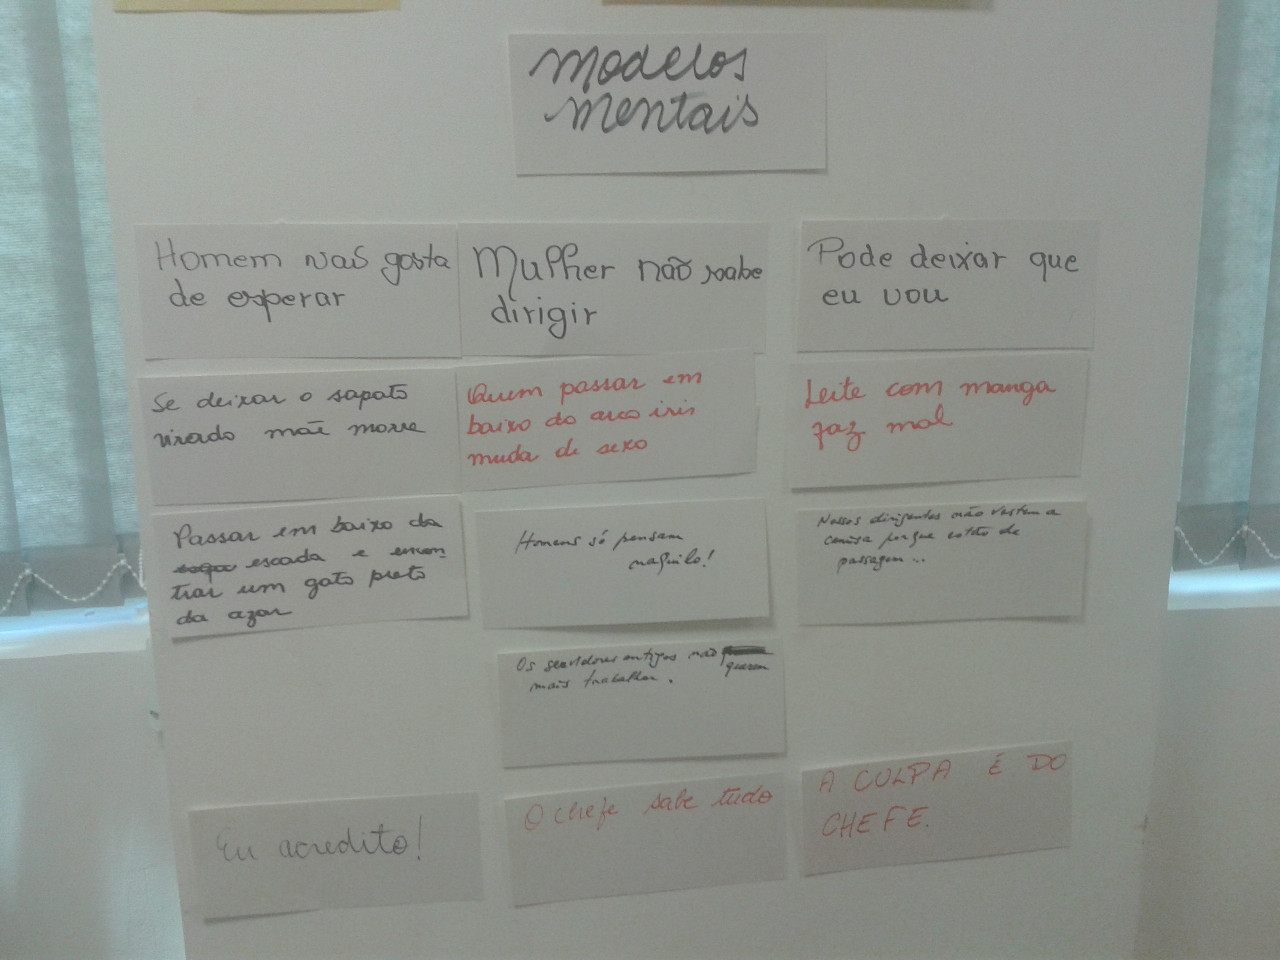 modelos
mentais
Homem não gosta
de esperar
Mulher não sabe
dirigir
Pode deixar que
eu vou
Se deixar o sapato
virado mãe morre
Quem passar em
baixo do arco iris
muda de sexo
Leite com manga
faz mal
Passar em baixo da
escada e encon
trar um gato preto
da azar
Homens só pensam
naquilo!
Nossos dirigentes não vestem a
camisa porque estão de
passagem...
Os servidores antigos não querem
mais trabalhar.
Eu acredito!
O chefe sabe tudo
A CULPA É DO
CHEFE.